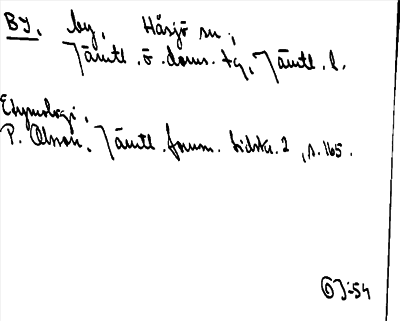 BY, by, Håsjö sn.,
Jämtl. ö. doms. tg, Jämtl. l.
Etymologi.
P. Olsson, Jämtl. fornm. tidskr. 2, s. 165.
J-54